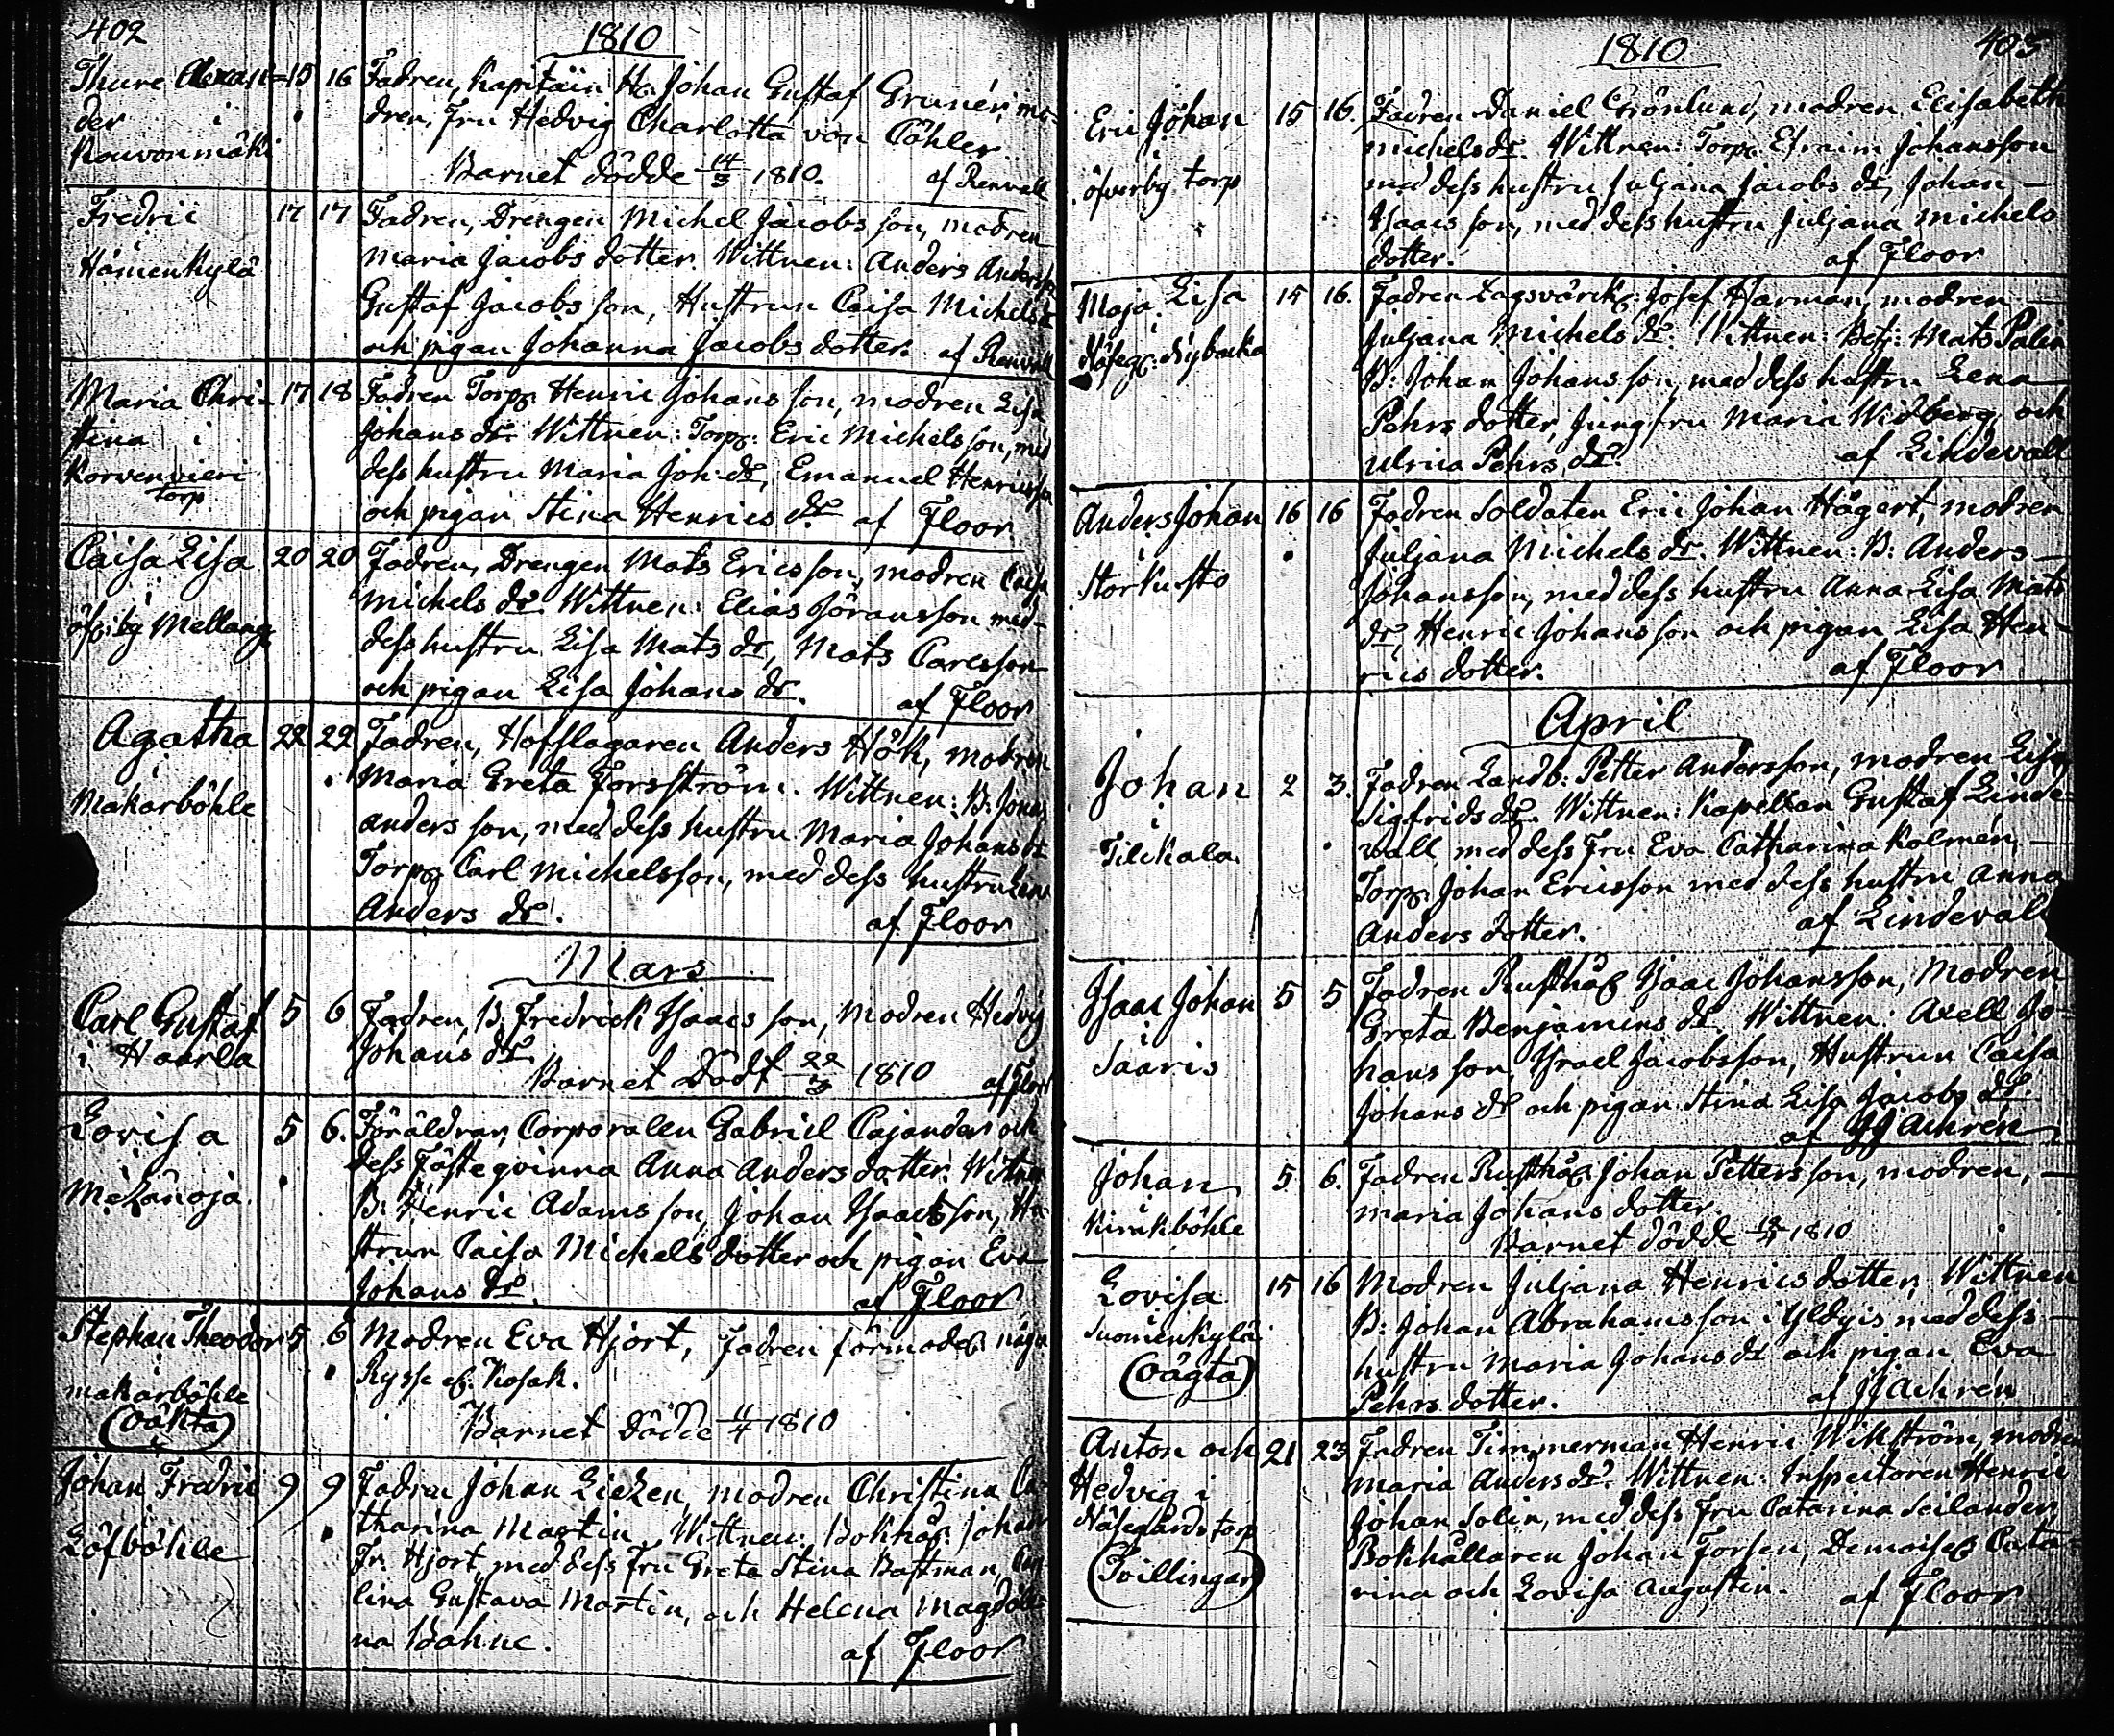 402
1810
Thure Alexan- 15 16 Fadren, Kapitäin Hr Johan Gustaf Gruner, mo-
der i dren, Fru Hedvig Charlotta von Cöhler
Kouvonmäki Barnet dödde 14/3 1810. af Renvall
Fredric 17 17 Fadren, Drengen Michel Jacobs son, modren
i Maria Jacobs dotter. Wittnen: Anders Anderss
Hämenkylä Gustaf Jacobs son, Hustrun Caisa Michels dr
och pigan Johanna Jacobs dotter. af Renvall
Maria Chri- 17 18 Fadren Torp. Henric Johans son, modren Lisa
stina i Johans dr. Wittnen: Torp: Eric Michels son, med
Korvenvieri dess hustru Maria Joh: dr, Emanuel Henricsson
torp och pigan Stina Henrics dr af Floor.
Caisa Lisa 20 20 Fadren, Drengen Mats Ericsson, modren Caisa
i Michels dr. Wittnen: Elias Jöransson med-
öf:by Mellang. dess hustru Lisa Mats dr, Mats Carlsson
och pigan Lisa Johans dr. af Floor
Agatha 22 22 Fadren, Hofslagaren Anders Hök, modren
i Maria Greta Forsström. Wittnen: B: Jonas
Makarböhle anders son, med dess hustru Maria Johans dr
Torp. Carl Michelsson, med dess hustru Lena
Anders dr. af Floor
Mars
Carl Gustaf 5 6 Fadren, B. Fredrick Isaacs son, Modren Hedvig
i Haarla Johans dr.
Barnet Dödt 22/3 1810 af Floor
Lovisa 5 6. Föräldrar, Corporalen Gabriel Cajander och
i dess Fästeqvinna Anna Anders dotter. Wittnen
Mekänoja. B: Henric Adams son, Johan Isaacsson, Hu-
strun Caisa Michels dotter och pigan Eva
Johans dr. af Floor
Stephan Theodor 5 6 Modren Eva Hjort, Fadren förmodes någn
i Ryss el. Kosak.
makarböhle
(oäkta) Barnet Dödde 11/4 1810
Johan Fredric 9 9 Fadren Johan Liezen, modren Christina Ca-
i tharina Martin, Wittnen: Bokhåll: Johan
Löfböhle Fr. Hjort, med dess Fru Greta Stina Bastman,
lina Gustava Martin, och Helena Magdale-
na Bohne. af Floor
1810 403
Eric Johan 15 16. Fadren Daniel Grönlund, modren Elisabeth
i michels dr. Wittnen: Torp. Efraim Johansson
öfverby torp med dess hustru Juljana Jacobs dr, Johan –
Isaacs son, med dess hustru Juljana Michels
dotter. af Floor
Maja Lisa 15 16. Fadren Josef Harman, modren –
i Juljana Michels dr. Wittnen: Betj: Mats Palin
Näseg: Nybacka B: Johan Johans son, med dess hustru Lena
Pehrs dotter, Jungfru Maria Widberg, och
Ulrica Pehrs dr. af Lindevall
Anders Johan 16 16 Fadren Soldaten Eric Johan Hägert, modren
i Juljana Michels dr. Wittnen: B: Anders –
Storkusto Johansson, med dess hustru Anna Lisa Mats
dr, Henric Johans son och pigan Lisa Hen-
rics dotter. af Floor
April
Johan 2 3. Fadren Landb: Petter Andersson, modren Lisa
i Sigfrids dr. Wittnen: Kapellan Gustaf Linde-
Tilckala wall med dess Fru Eva Catharina Kolmén, –
Torp. Johan Ericsson med dess hustru Anna
Anders dotter. af Lindevall
Isaac Johan 5 5 Fadren Rusthål Isaac Johansson, Modren
i Greta Benjamins dr. Wittnen: Axell Jo-
Saaris hans son, Israel Jacobsson, Hustrun Caisa
Johans dr och pigan Stina Lisa Jacobs dr
af JJ Achrén
Johan 5 6. Fadren Rusthål. Johan Petters son, modren, –
i maria Johans dotter
Kirckböhle Barnet dödde 1810
Lovisa 15 16 Modren Juljana Henrics dotter, Wittnen
i B: Johan Abrahamsson i Yldyis med dess –
Suomenkylä hustru Maria Johans dr och pigan Eva
(oägta) Pehrs dotter. af JJ Achrén
Anton och 21 23 Fadren Timmerman Henric Wikström, modren
Hedvig i Maria Anders dr. Wittnen: Inspectoren Henric
Näsegårds torp Johan Solin, med dess Fru Catarina Seilander,
(Tvillingar) Bokhållaren Johan Forsen, Demoisel. Cata-
rina och Lovisa Augustin. af Floor